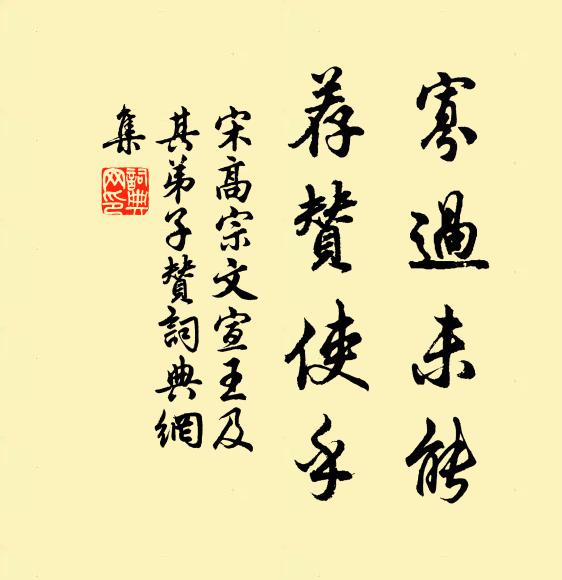 寡過未能
荐贊使乎
宋高宗文宣王及
其弟子贊詞典網
集
詞典網印